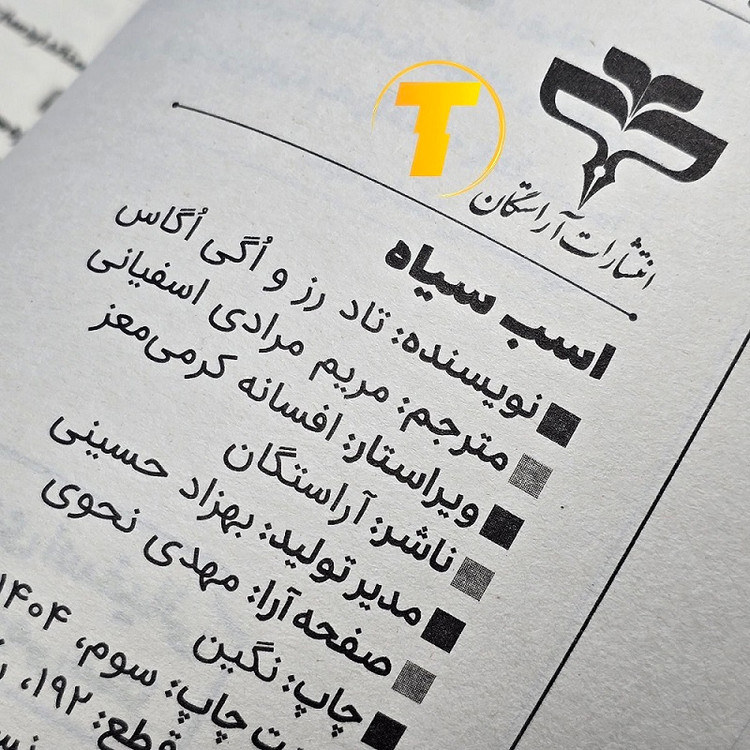 انتشارات آراستگان
اسب سیاه
نویسنده: تاد رز و اُگی اُگاس
مترجم: مریم مرادی اسفیانی
ویراستار: افسانه کرمی‌معز
ناشر: آراستگان
مدیر تولید: بهزاد حسینی
صفحه آرا: مهدی نحوی
چاپ: نگین
چاپ: سوم، ۱۴۰۴
قطع: ۱۹۲،